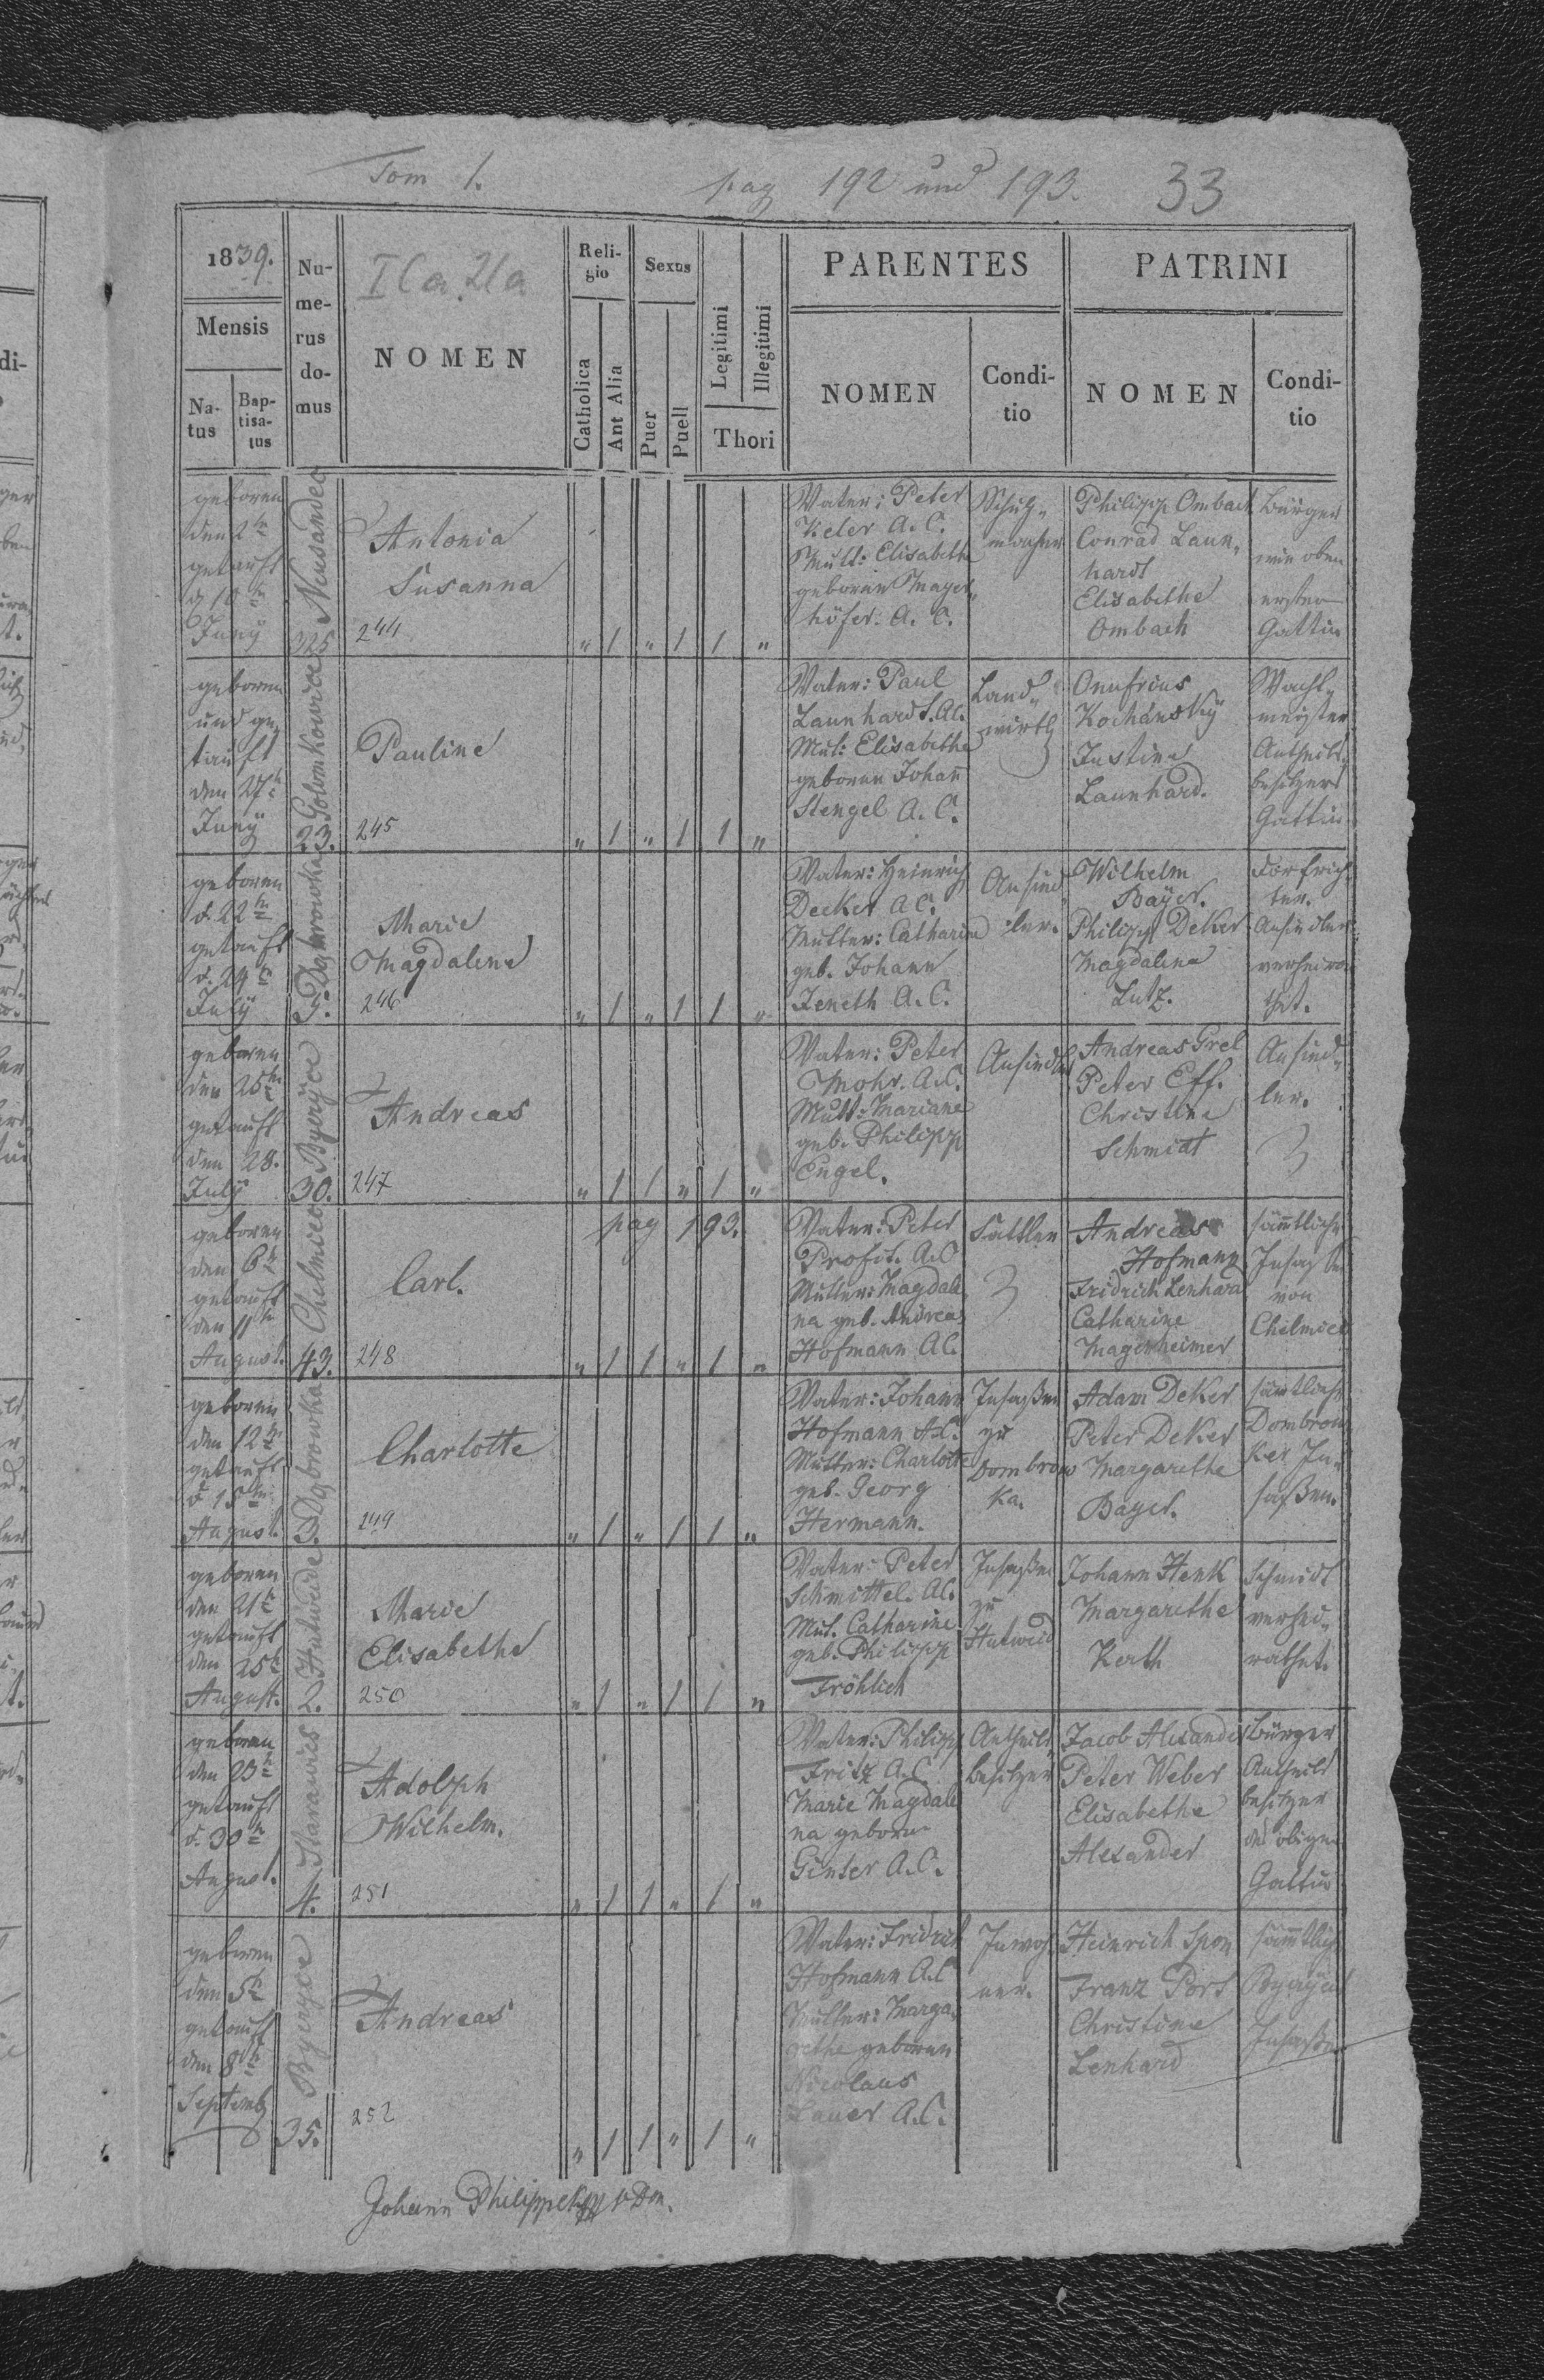 Tom 1. pag 192 und 193. 33
1839. Numerus domus I Ca. 21a Religio Sexus PARENTES PATRINI
Mensis NOMEN Catholica Aut Alia Puer Puell Legitimi Illegitimi Thori NOMEN Conditio NOMEN Conditio
Natus Baptisatus
geboren
den 2tn
getauft
d. 10tn
Juny
Neusandec
325
Antonia
Susanna
244
" 1 " 1 1 "
Vater: Peter
Keler A. C.
Mutt: Elisabeth
geboren Mayer-
höfer. A. C.
Philipp Ombach
Conrad Laun-
hardt
Elisabethe
Ombach
Bürger
wie oben
ersten
Gattin
geboren
und ge-
tauft
den 27t
Juny
Golonkowice
23.
Pauline
245
" 1 " 1 1 "
Vater: Paul
Launhardt. A.C.
Mut: Elisabethe
geboren Johañ
Stengel A. C.
Land-
wirth
Onufrius
Kochánský
Justine
Launhard.
Wacht-
meister
Antheils-
besitzers
Gattin
geboren
d. 22tn
getauft
d. 29t
July
Dąbrowka
5.
Marie
Magdalena
246
" 1 " 1 1 "
Vater: Heinrich
Decker A C.
Mutter: Catharine
geb. Johann
Jeneth A. C.
Ansied-
ler.
Wilhelm
Bayer.
Philipp Deker
Magdalena
Lutz.
Dorfrich-
ter.
Ansiedler
verheira-
thet.
geboren
den 25tn
getauft
den 28.
July
Byczyce
30.
Andreas
247
" 1 1 " 1 "
Vater: Peter
Mohr. A.C.
Mutt: Mariane
geb. Philipp
Engel.
Ansiedler
Andreas Grel
Peter Eff.
Christine
Schmidt
Ansied-
ler.
geboren
den 6t
getauft
den 11tn
August.
Chelmiec
43.
Carl.
248
pag 193.
" 1 1 " 1 "
Vater: Peter
Profit. A.C
Mutter: Magdale
na geb. Andreas
Hofmann AC.
Sattler
Andreas
Hofmann
Fridrich Lenhard
Catharine
Magenheimer
sämtliche
Insaßen
von
Chelmiec
geboren
den 12t
getauft
d. 15tn
August.
Dąbrowka
3.
Charlotte
249
" 1 " 1 1 "
Vater: Johann
Hofmann A.C.
Mutter: Charlotte
geb. Georg
Hermann.
Insaßen
zu
Dombrow
ka.
Adam Deker
Peter Deker
Margarethe
Bayer.
sämtliche
Dombrow
ker In-
saßen.
geboren
den 21t
getauft
den 25t
August.
Hutweide
2.
Marie
Elisabethe
250
" 1 " 1 1 "
Vater: Peter
Schmittel. AC.
Mut. Catharine
geb. Philipp
Fröhlich
Insaßen
zu
Hutweid
Johann Henk
Margarethe
Kerth
Schmidt
verhei-
rathet.
geboren
den 23t
getauft
d. 30t
August.
Starawies
4.
Adolph
Wilhelm.
251
" 1 1 " 1 "
Vater: Philipp
Fritz A.C.
Marie Magdale
na geborne
Ginter A.C.
Antheils-
besitzer
Jacob Alexander
Peter Weber
Elisabethe
Alexander
Bürger
Antheils
besitzer
des obigen
Gattin
geboren
den 5t
getauft
den 8t
Septemb
Byczyce
35.
Andreas
252
" 1 1 " 1 "
Vater: Fridrich
Hofmann A.C
Mutter: Marga-
rethe geboren
Nicolaus
Lauer A.C.
Inwoh-
ner.
Heinrich Spon
Franz Port
Christine
Lenhard
sämtlich
Byczyce
Insaßen
Johann Philipp